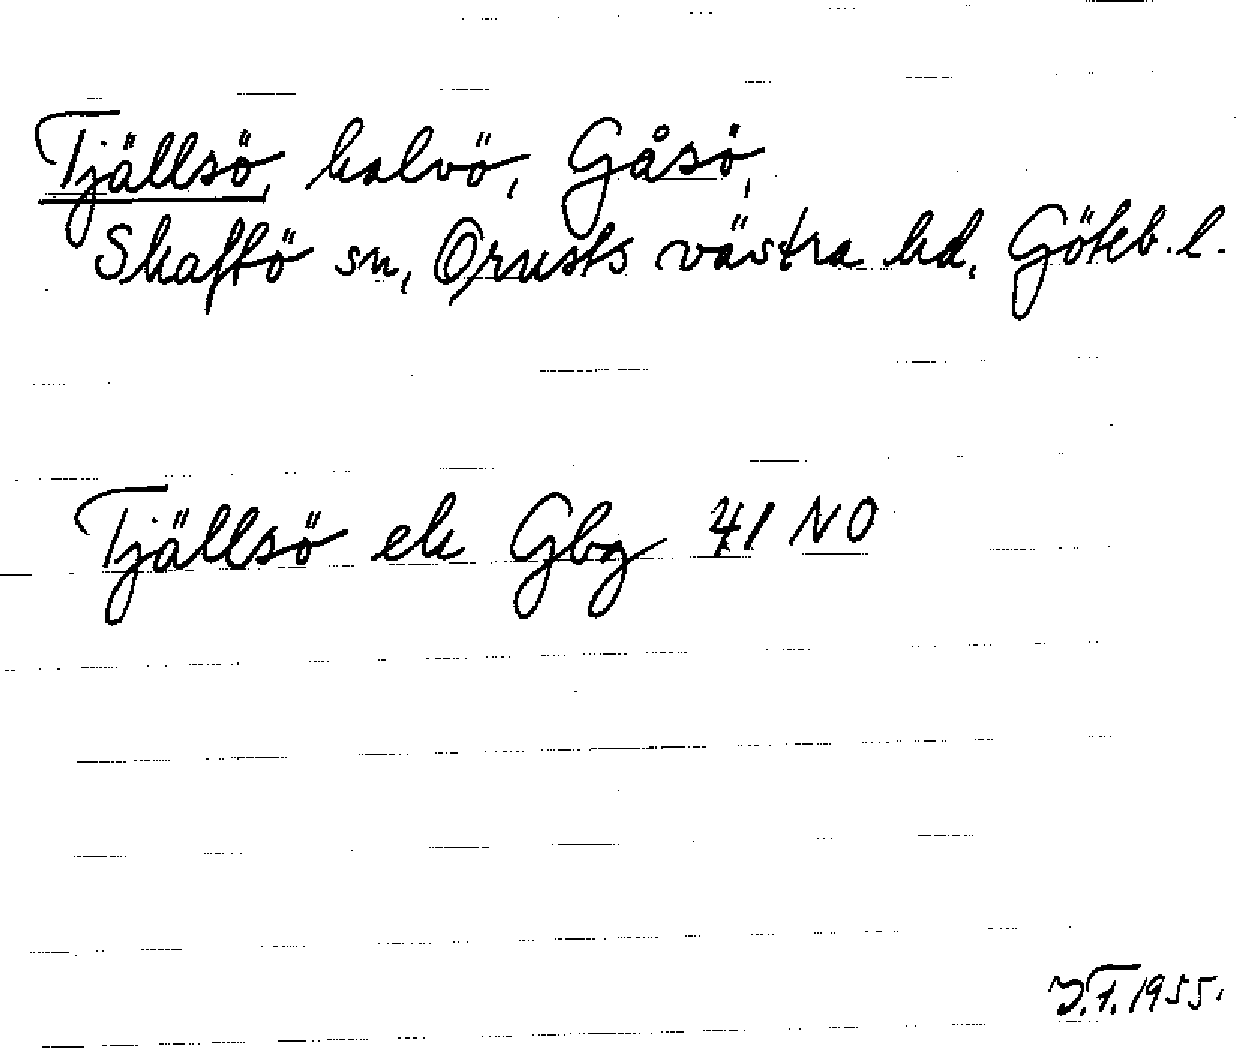 Tjällsö, halvö, Gåsö,
Skaftö sn, Orusts västra hd. Göteb. l.
Tjällsö ek Gbg 41 NO
J.T. 1955.